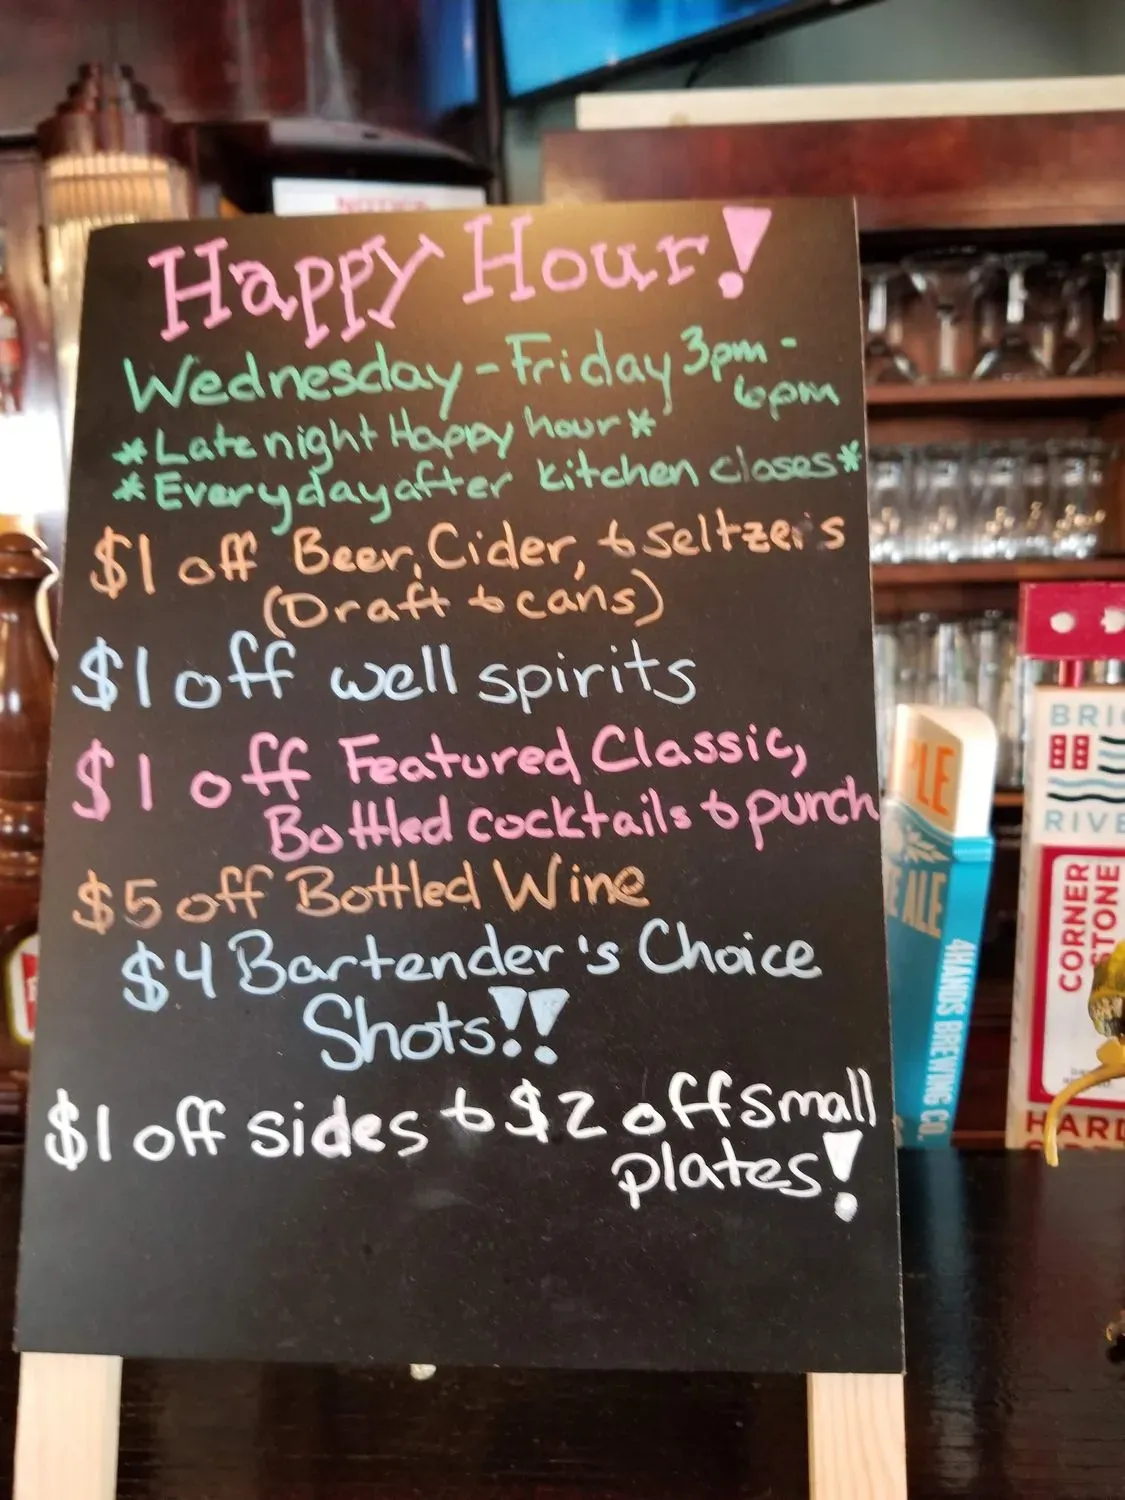 Happy Hour!
Wednesday - Friday 3pm -
6pm
*Late night Happy hour*
*Everyday after kitchen closes*
$1 off Beer, Cider, & seltzers
(Draft & cans)
$1 off well spirits
$1 off Featured Classic,
Bottled cocktails & punch
$5 off Bottled Wine
$4 Bartender's Choice
Shots!!
$1 off sides & $2 off small
plates!
NOTICE
PLE
E ALE
4HANDS BREWING CO.
BRIC
RIVE
CORNER
STONE
HARD